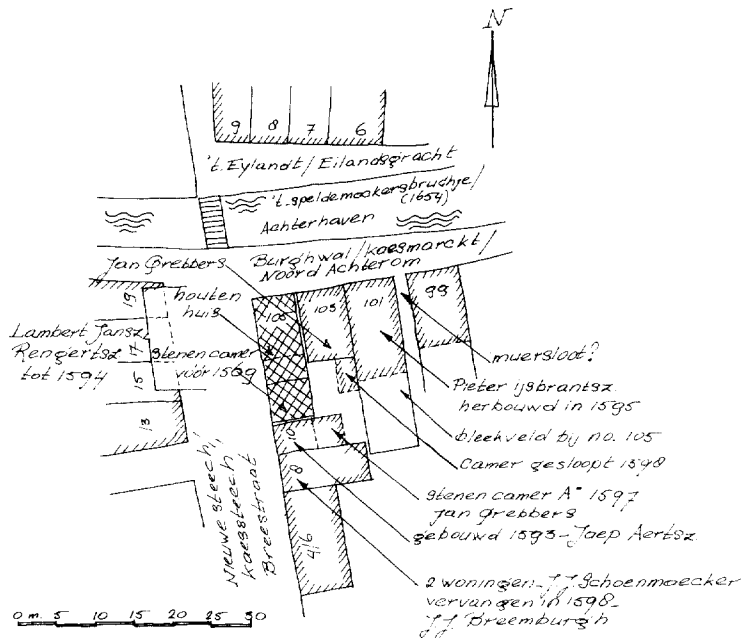 N
9 8 7 6
't. Eylandt / Eilandsgracht
't. speldemaakersbrughje /
(1654)
Achterhaven
Burghwal / kaesmarckt /
Noord Achterom
Jan Grebbers
houten
huis
Lambert Jansz.
Rengertsz
tot 1594
stenen camer
vóór 1569
19
17
15
13
103
101
99
muersloot?
Pieter ijsbrantsz.
herbouwd in 1595
bleekveld bij no. 105
Camer gesloopt 1598
10
8
4/6
Stenen camer Aº 1597
Jan Grebbers
gebouwd 1593 - Jaep Aertsz.
2 woningen - J.J. Schoenmaecker
vervangen in 1598 -
J.J. Breemburgh
Nieuwe steech,
kaessteech,
Breestraat
0 m. 5 10 15 20 25 30